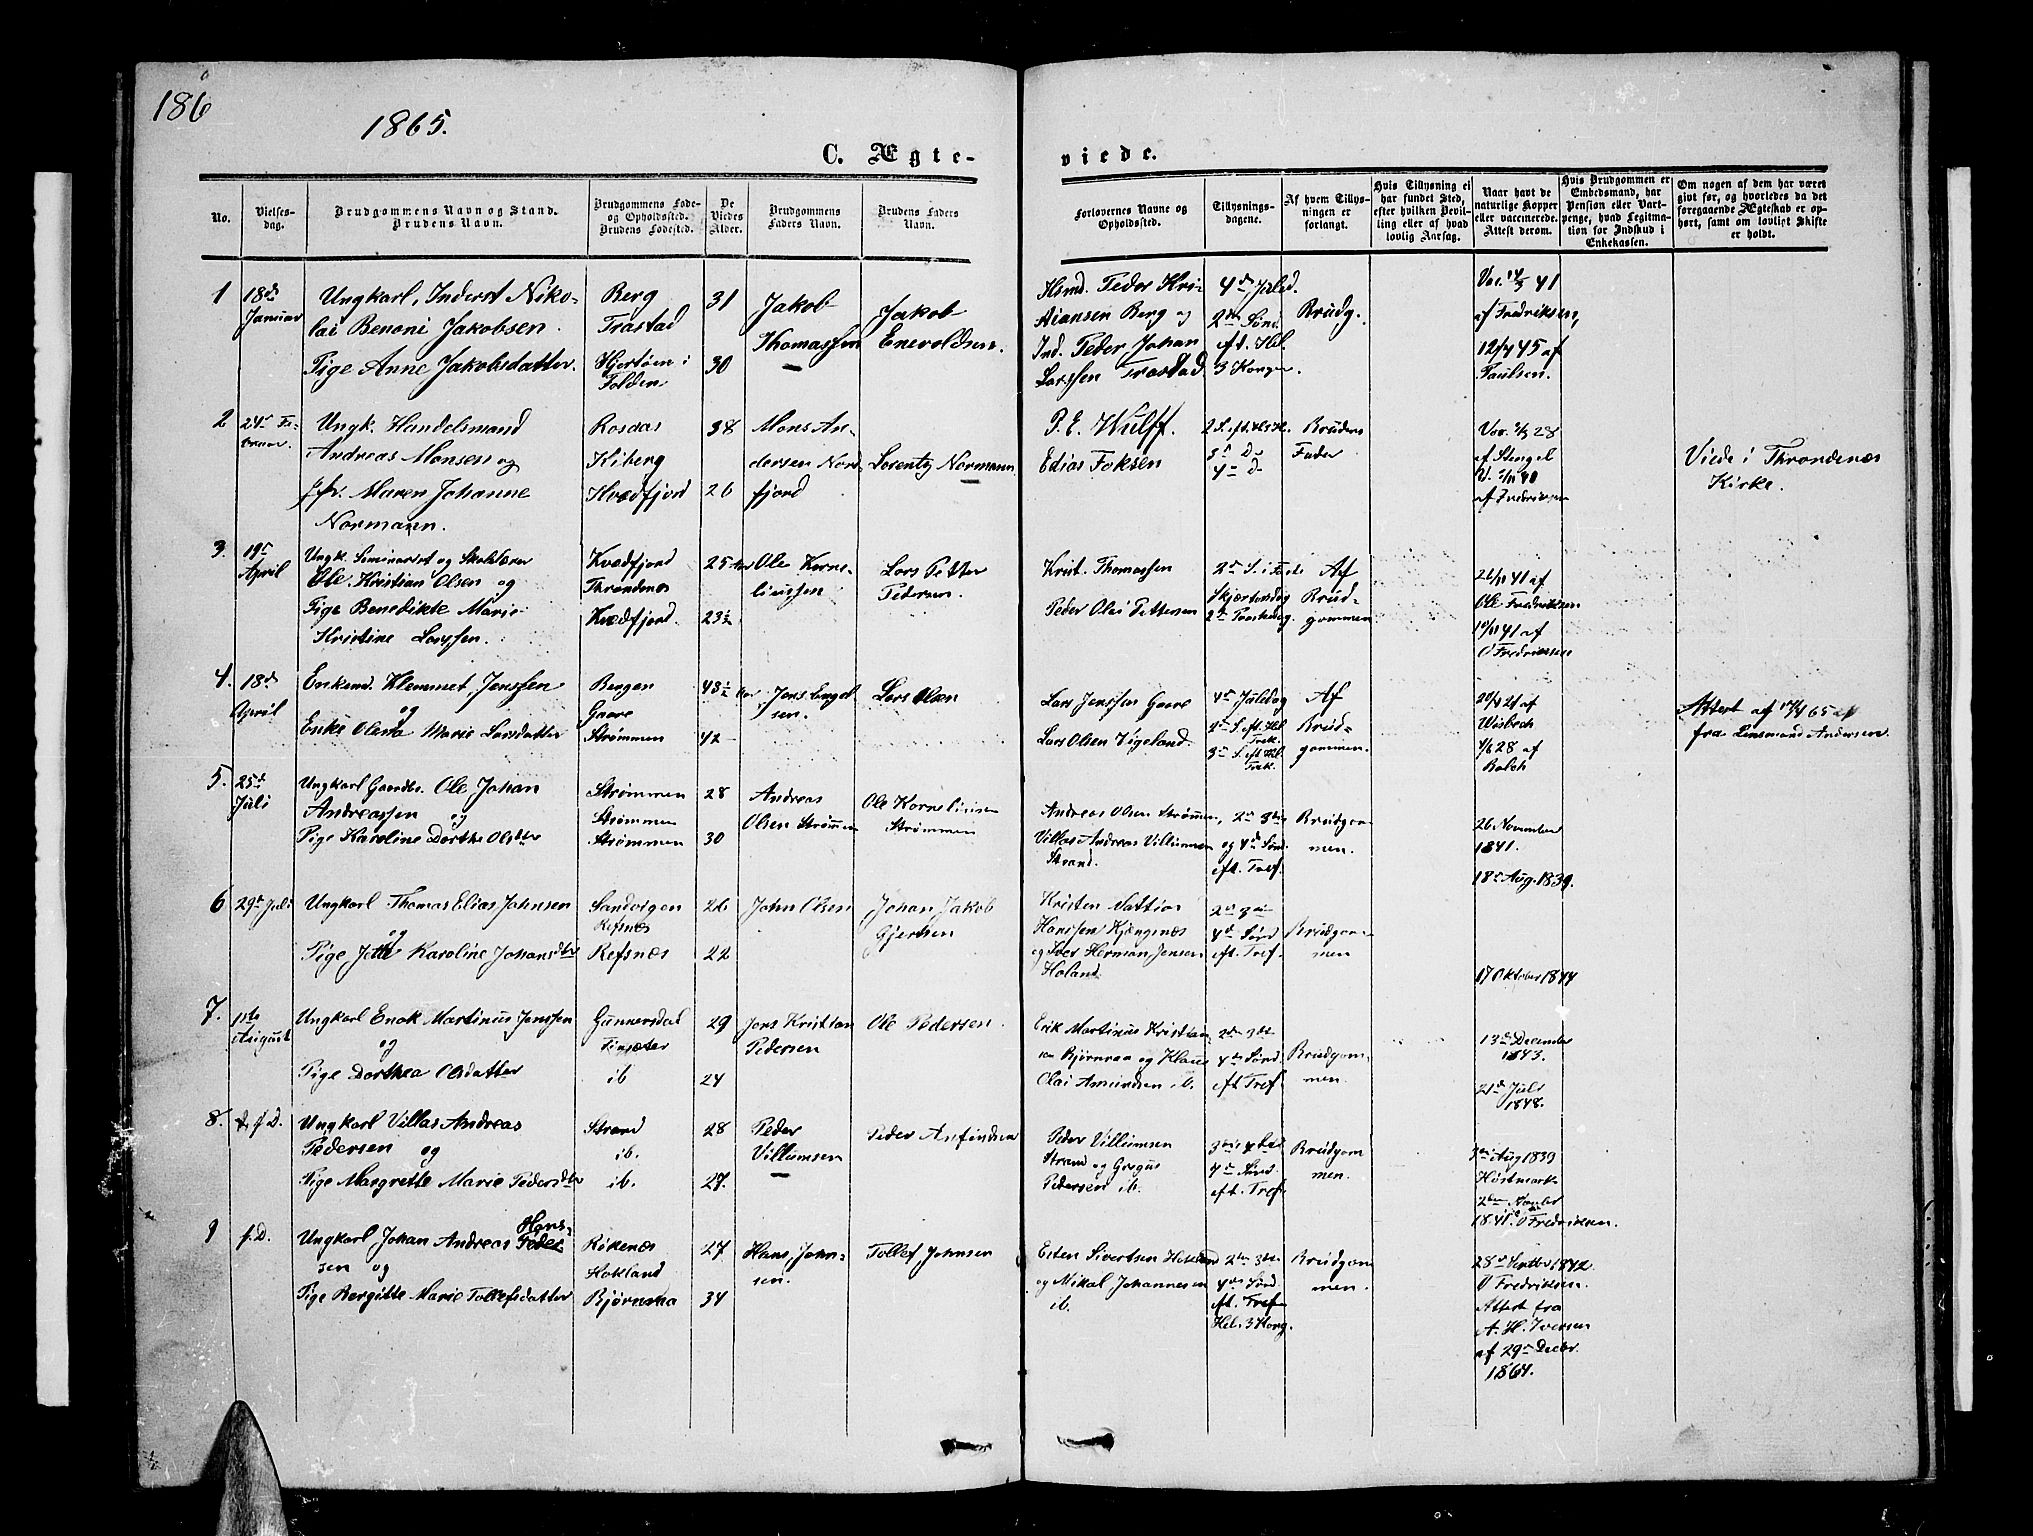 186
1865.
C. Ægte-
viede.
No.
Vielses-
dag.
Brudgommens Navn og Stand.
Brudens Navn.
Brudgommens Føde-
og Opholdssted.
Brudens Fødested.
De
Viedes
Alder.
Brudgommens
Faders Navn.
Brudens Faders
Navn.
Forlovernes Navne og
Opholdssted.
Tillysnings-
dagene.
Af hvem Tillys-
ningen er
forlangt.
Hvis Tillysning ei
har fundet Sted,
efter hvilken Bevil-
ling eller af hvad
lovlig Aarsag.
Naar havt de
naturlige Kopper
eller vaccinerede.
Attest derom.
Hvis Brudgommen er
Embedsmand, har
Pension eller Vart-
penge, hvad Legitima-
tion for Indskud i
Enkekassen.
Om nogen af dem har været
givt før, og hvorledes da det
foregaaende Ægteskab er op-
hørt, samt om lovligt Skifte
er holdt.
1
18de
Januar
Ungkarl, Inderst Niko-
lai Benoni Jakobsen
Pige Anne Jakobsdatter.
Berg
Trastad
Hjertøen i
Folden
31
30
Jakob
Thomassen
Jakob
Enevoldsen.
Hsmd. Peder Kri-
stiansen Berg og
Ind. Peder Johan
Larssen Trastad
4de Juled.
2den Sønd.
eft. Hel.
3 Konger.
Brudg.
41
af Fredriksen,
12/4 45 af
Paulsen.
2
24de Fe-
bruar.
Ungk. Handelsmand
Andreas Monsen og
Jfr. Maren Johanne
Normann.
Rosdas
Kiberg
Kvædfjord
38
26
Mons An-
dersen Nord
fjord
Lorentz Normann
P. E. Wulff.
Edias Foksen
3de D
4de D
Brudens
Fader
28
af Stengel
af Fredriksen
Viede i Throndenæs
Kirke.
3.
19de
April
Ungk. Seminarist og Skolelærer
Ole Kristian Olsen og
Pige Benedikte Marie
Kristine Larssen.
Kvædfjord
Throndenæs
Kvædfjord.
25
23½
Ole Korne-
liussen
Lars Petter
Pedersen.
Krist. Thomassen
Peder Olai Pettersen
2den S. i Faste
Skjærtorsdag
2den Paaskedag.
Af
Brud-
gommen
26/11 41 af
Ole Fredriksen
10/11 41 af
O Fredriksen
4.
18de
April
Enkemd. Klemmet Jenssen
og
Enke Olena Marie Larsdatter
Bergen
Gaare
Strømmen
43½
42
Jens Engel
sen.
Lars Olsen
Lars Jenssen Gaare
Lars Olsen Vigeland
4de Juledag
2den S. eft. Hel.
Trek.
3de S. eft. Hel.
Trek.
Af
Brud-
gommen.
20/4 21 af
Wisbech
4/6 28 af
Balch
Attest af 17/4 65 af
fra Lensmand Andersen.
5.
25de
Juli
Ungkarl Gaardbr. Ole Johan
Andreassen og
Pige Karoline Dorthe Olsdtr
Strømmen
Strømmen
Strømmen
28
30
Andreas
Olsen Strømmen
Ole Korneliusen
Strømmen
Andreas Olsen Strømmen,
Villas Andreas Villumsen
Strand.
2den 3die
og 4de Sønd.
eft. Tref.
Brudgom-
men.
26 November
1841.
18de Aug. 1839.
6
29de Juli
Ungkarl Thomas Elias Johnsen
og
Pige Jette Karoline Johansdtr
Sandvigen
Refsnes
Refsnæs
26
22
John Olsen
Johan Jakob
Gjertsen
Kristen Mattias
Hanssen Kjengsnæs
og Iver Herman Jensen
Holand
2den 3die
4de Sønd
eft. Tref.
Brudgom-
men
17 Oktober 1844
7.
1ste
August
Ungkarl Enok Martinus Jenssen
og
Pige Dorthea Olsdatter
Gunnersdal
Finsæter
ib
29
24
Jens Kristian
Pedersen
Ole Pedersen.
Erik Martinus Kristian
sen Bjørnraa og Klaus
Olai Amundsen ib.
2den 3die
4de Sønd.
eft. Tref.
Brudgom-
men.
13de December
1843.
21de Juli
1848.
8.
f. D.
Ungkarl Villas Andreas
Pedersen og
Pige Margrethe Marie Pedersdtr
Strand
ib.
ib.
28
27.
Peder
Villumsen
Peder Anfindsen
Peder Villumsen
Strand og Gregus
Pedersen ib.
3die
4de Sønd.
eft. Tref.
Brudgom
men.
3die Aug 1839
Høstmark
2den Novbr
1841. O Fredriksen.
9
f. D.
Ungkarl Johan Andreas Hans-
sen og
Pige Bergitte Marie Tollefsdatter
Røkenæs
Hokland
Bjørnraa
27
34
Hans John-
sen.
Tollef Johnsen
Esten Sivertsen Hokland
og Mikal Johannesen
ib.
2den 3die
4de Sønd.
eft. Tref
Hel. 3 Kong.
Brudgom
men.
28de Septbr 1842
O Fredriksen.
Attest fra
A. H. Iversen
af 29de Decbr.
1864.